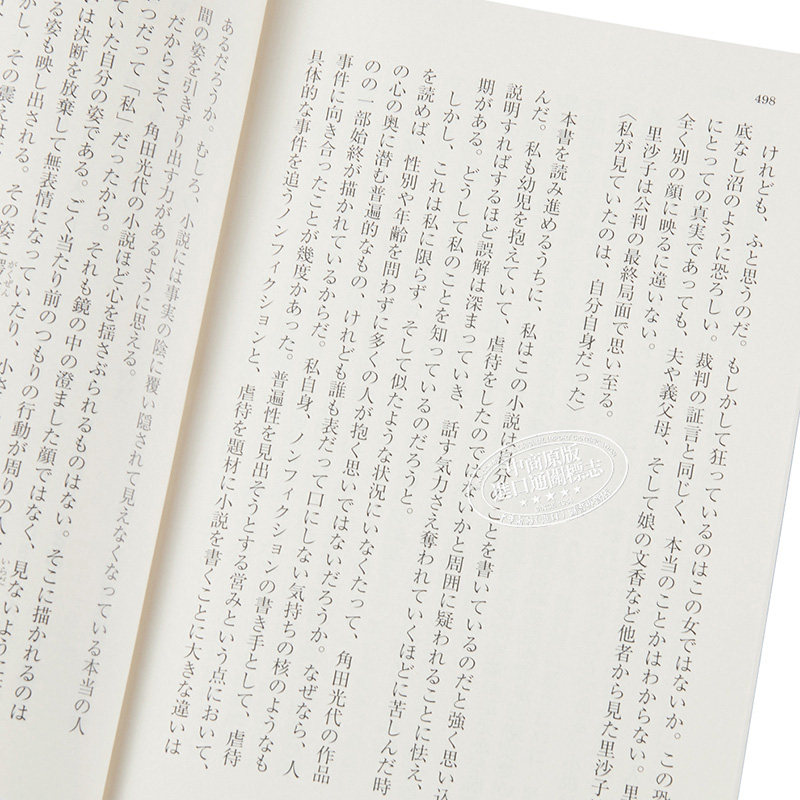 498
けれども、ふと思うのだ。もしかして狂っているのはこの女ではないか。この恐
底なし沼のように恐ろしい。裁判の証言と同じく、本当のことかはわからない。里
にとっての真実であっても、夫や義父母、そして娘の文香など他者から見た里沙子
全く別の顔に映るに違いない。
里沙子は公判の最終局面で思い至る。
〈私が見ていたのは、自分自身だった〉
本書を読み進めるうちに、私はこの小説は自分 ことを書いているのだと強く思い込
んだ。私も幼児を抱えていて、虐待をしたのではないかと周囲に疑われることに怯え、
説明すればするほど誤解は深まっていき、話す気力さえ奪われていくほどに苦しんだ時
期がある。どうして私のことを知っているのだろうと。
しかし、これは私に限らず、そして似たような状況にいなくたって、角田光代の作品
を読めば、性別や年齢を問わずに多くの人が抱く思いではないだろうか。なぜなら、人
の心の奥に潜む普遍的なもの、けれども誰も表だって口にしない気持ちの核のようなも
のの一部始終が描かれているからだ。私自身、ノンフィクションの書き手として、虐待
事件に向き合ったことが幾度かあった。普遍性を見出そうとする営みという点において、
具体的な事件を追うノンフィクションと、虐待を題材に小説を書くことに大きな違いは
あるだろうか。むしろ、小説には事実の陰に覆い隠されて見えなくなっている本当の人
間の姿を引きずり出す力があるように思える。
だからこそ、角田光代の小説ほど心を揺さぶられるものはない。そこに描かれるのは
つだって「私」だったから。それも鏡の中の澄ました顔ではなく、見ないように
ていた自分の姿である。ごく当たり前のつもりの行動が周りの人
は決断を放棄して無表情になっていたり、小さ
る姿も映し出される。その姿に
かし、その震えは
中商原版
進口通關標志